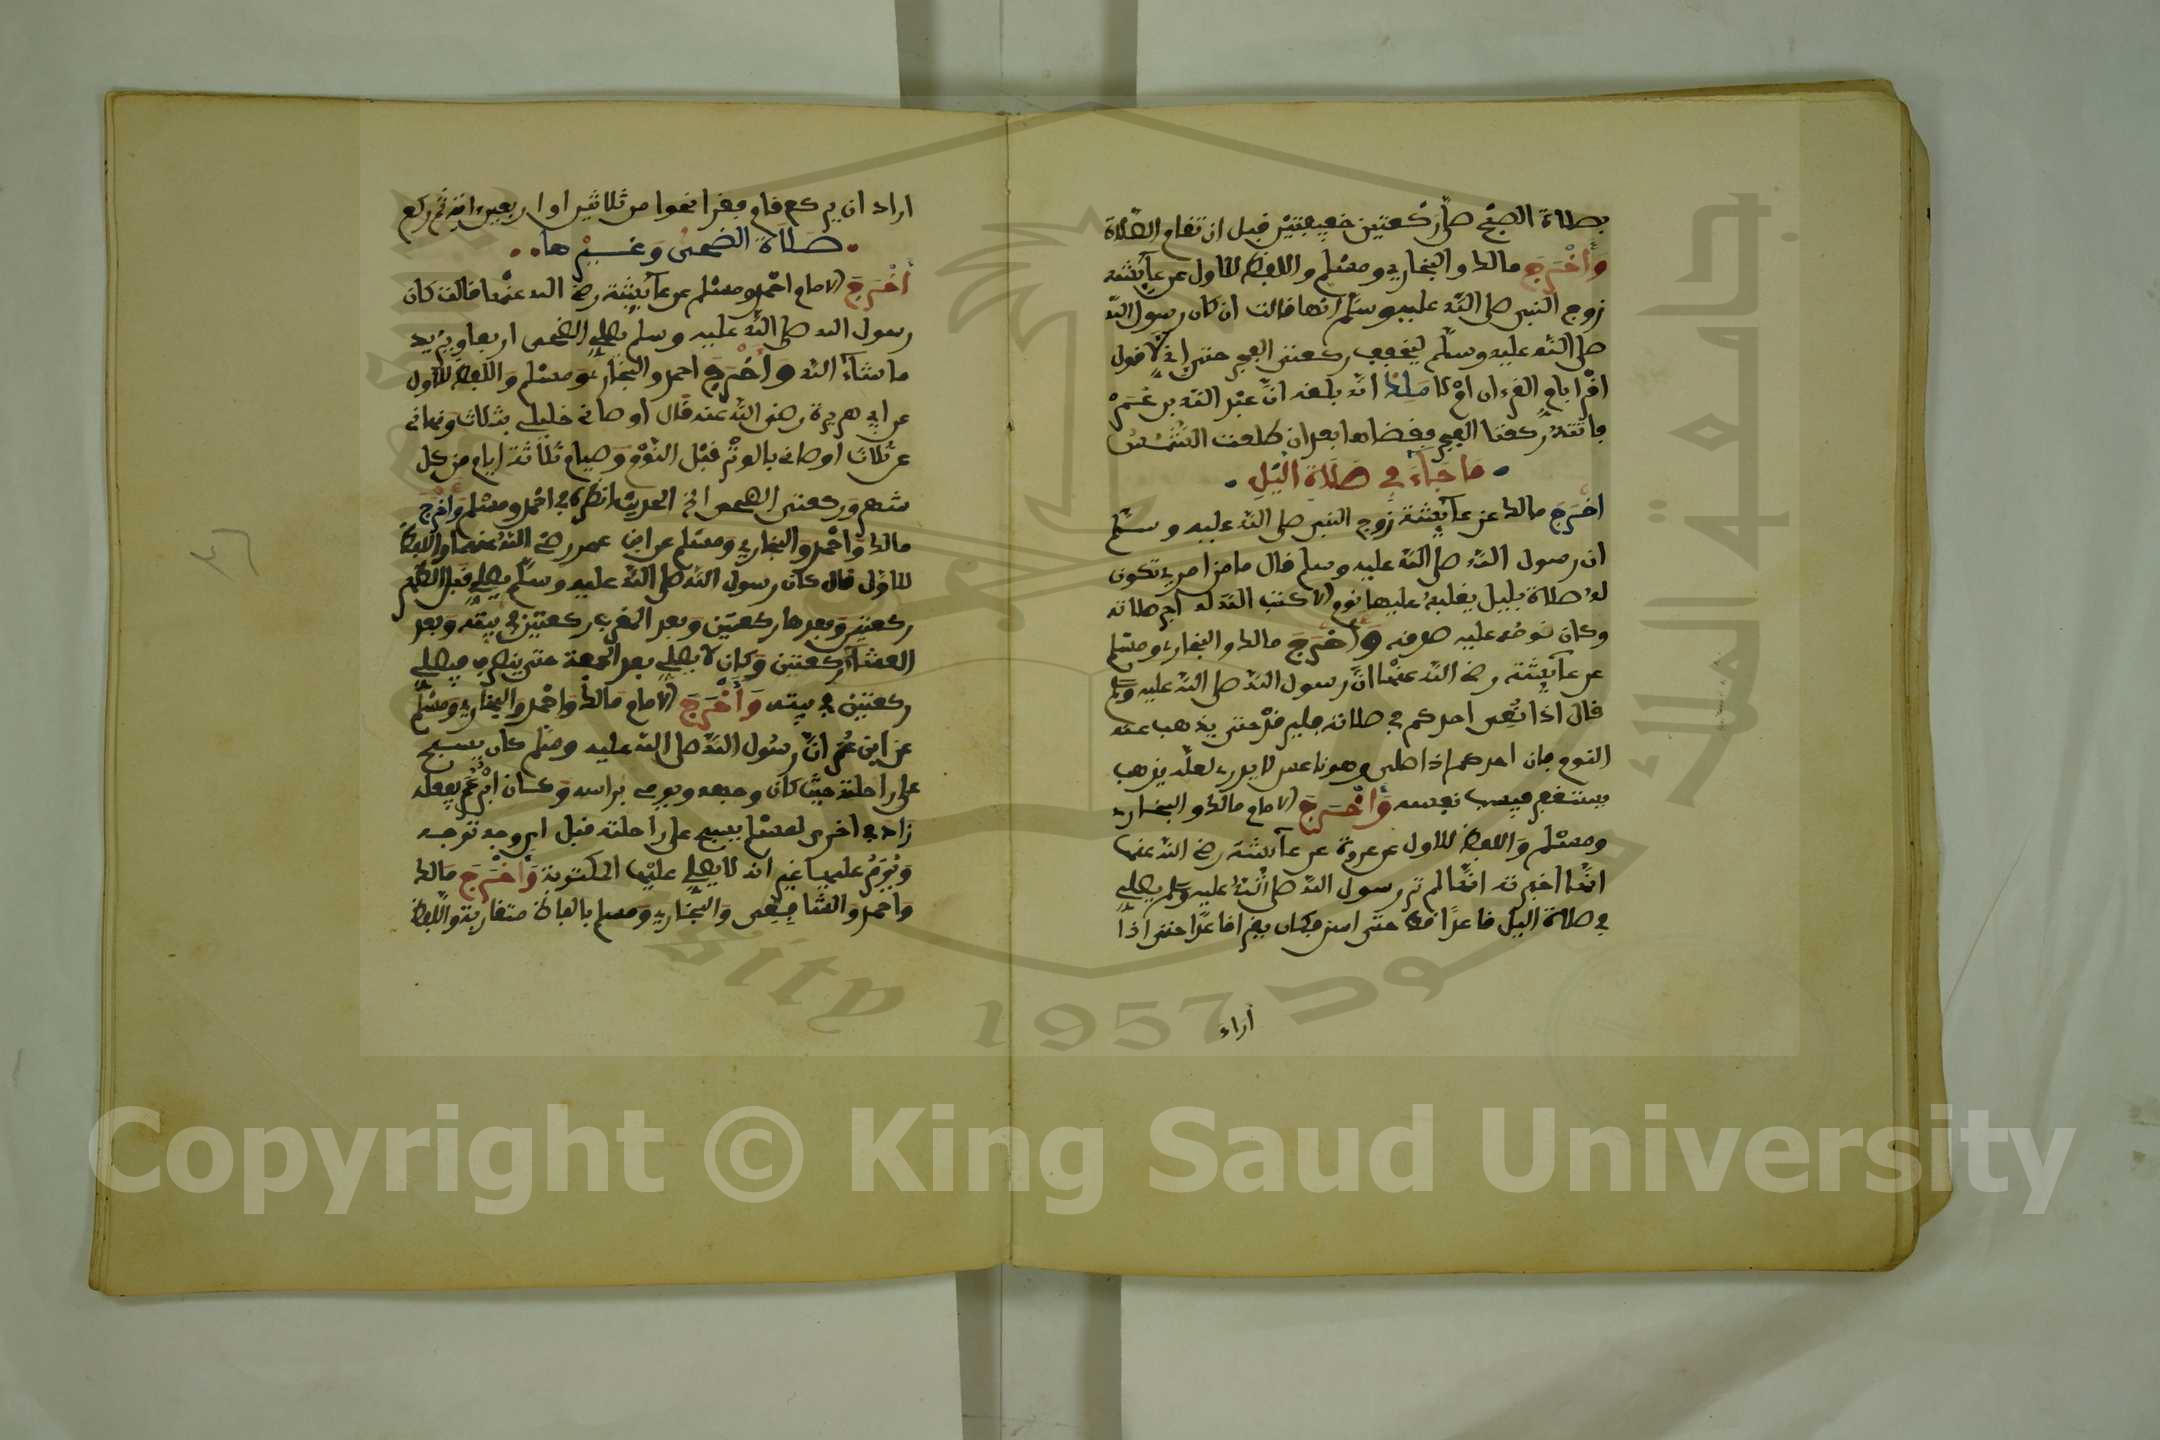 بصلاة الصبح صلى ركعتين خفيفتين قبل ان تقام الصلاة
وأخرج مالك والبخاري ومسلم واللفظ للاول عن عايشة
زوج النبي صلى الله عليه وسلم انها قالت ان كان رسول الله
صلى الله عليه وسلم ليخفف ركعتي الفجر حتى اني لاقول
اقرا بام القرءان ام لا مالك انه بلغه ان عبد الله بن عمر
فاتته ركعتا الفجر فقضاهما بعد ان طلعت الشمس
ما جاء في صلاة اليل
اخرج مالك عن عايشة زوج النبي صلى الله عليه وسلم
ان رسول الله صلى الله عليه وسلم قال ما من امرء تكون
له صلاة بليل يغلبه عليها نوم الا كتب الله له اجر صلاته
وكان نومه عليه صدقه وأخرج مالك والبخاري ومسلم
عن عايشة رضي الله عنها ان رسول الله صلى الله عليه وسلم
قال اذا نعس احدكم في صلاته فليرقد حتى يذهب عنه
النوم فان احدكم اذا صلى وهو ناعس لا يدري لعله يذهب
يستغفر فيسب نفسه وأخرج الامام مالك والبخاري
ومسلم واللفظ للاول عن عروة عن عايشة رضي الله عنها
انها اخبرته انها لم تر رسول الله صلى الله عليه وسلم يصلي
في صلاة اليل قاعدا قط حتى اسن فكان يقرا قاعدا حتى اذا
أراد
اراد ان يركع قام فقرا نحوا من ثلاثين او اربعين ءاية ثم ركع
صلاة الضحى وغيرها
أخرج الامام احمد ومسلم عن عايشة رضي الله عنها قالت كان
رسول الله صلى الله عليه وسلم يصلي الضحى اربعا ويزيد
ما شاء الله وأخرج احمد والبخاري ومسلم واللفظ للاول
عن ابي هريرة رضي الله عنه قال اوصاني خليلي بثلاث ونهاني
عن ثلاث اوصاني بالوتر قبل النوم وصيام ثلاثة ايام من كل
شهر وركعتي الضحى الخ الحديث انظره في احمد ومسلم وأخرج
مالك واحمد والبخاري ومسلم عن ابن عمر رضي الله عنهما واللفظ
للاول قال كان رسول الله صلى الله عليه وسلم يصلي قبل الظهر
ركعتين وبعدها ركعتين وبعد المغرب ركعتين في بيته وبعد
العشاء ركعتين وكان لا يصلي بعد الجمعة حتى ينصرف فيصلي
ركعتين في بيته وأخرج الامام مالك واحمد والبخاري ومسلم
عن ابن عمر ان رسول الله صلى الله عليه وسلم كان يسبح
على راحلته حيث كان وجهه ويومي براسه وكان ابن عمر يفعله
زاد في اخرى لمسلم يسبح على راحلته قبل اي وجه توجه
ويوتر عليها غير انه لا يصلي عليها المكتوبة وأخرج مالك
واحمد والشافعي والبخاري ومسلم بالفاظ متقاربة واللفظ
Copyright © King Saud University
جامعة الملك سعود
sity 1957